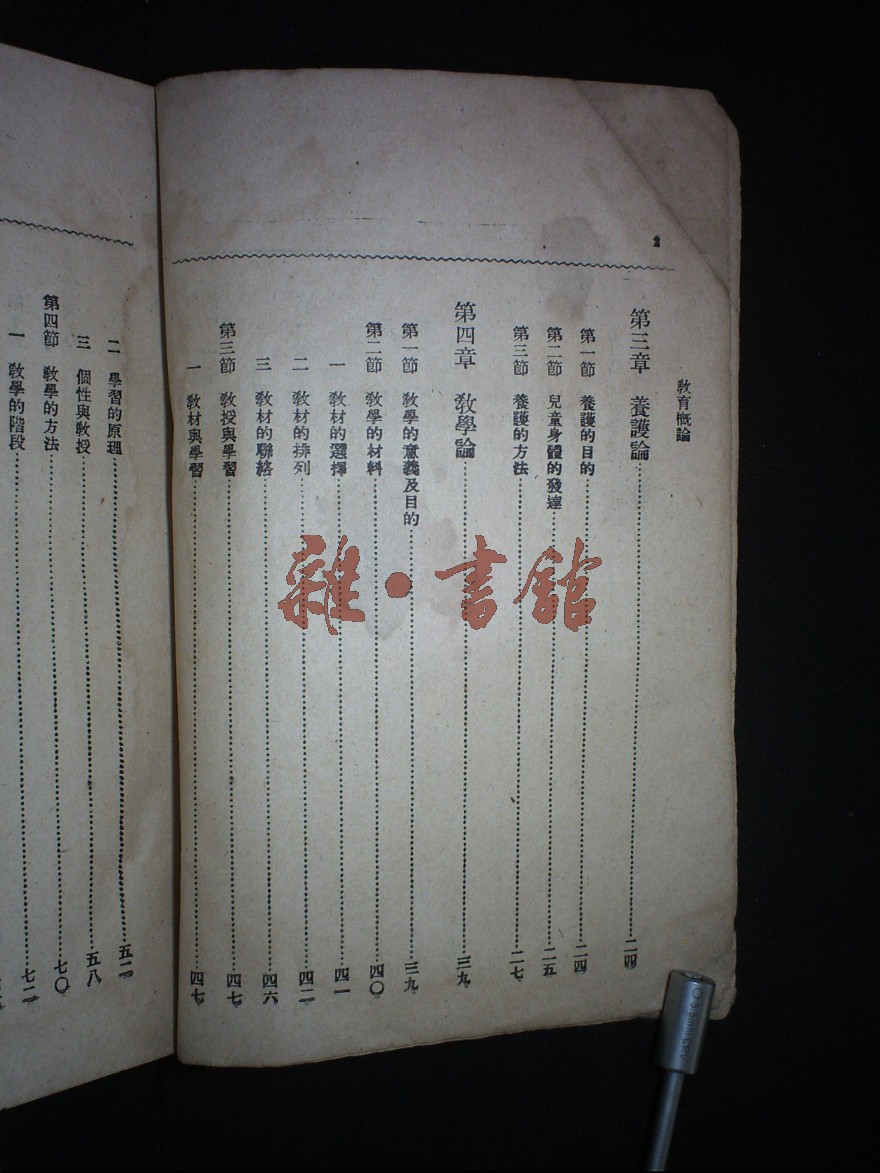 2
教育概論
第三章 養護論 二四
第一節 養護的目的 二四
第二節 兒童身體的發達 二五
第三節 養護的方法 二七
第四章 教學論 三九
第一節 教學的意義及目的 三九
第二節 教學的材料 四〇
一 教材的選擇 四一
二 教材的排列 四二
三 教材的聯絡 四六
第三節 教授與學習 四七
一 教材與學習 四七
二 學習的原理 五二
三 個性與教授 五八
第四節 教學的方法 七〇
一 教學的階段 七二
雜·書館